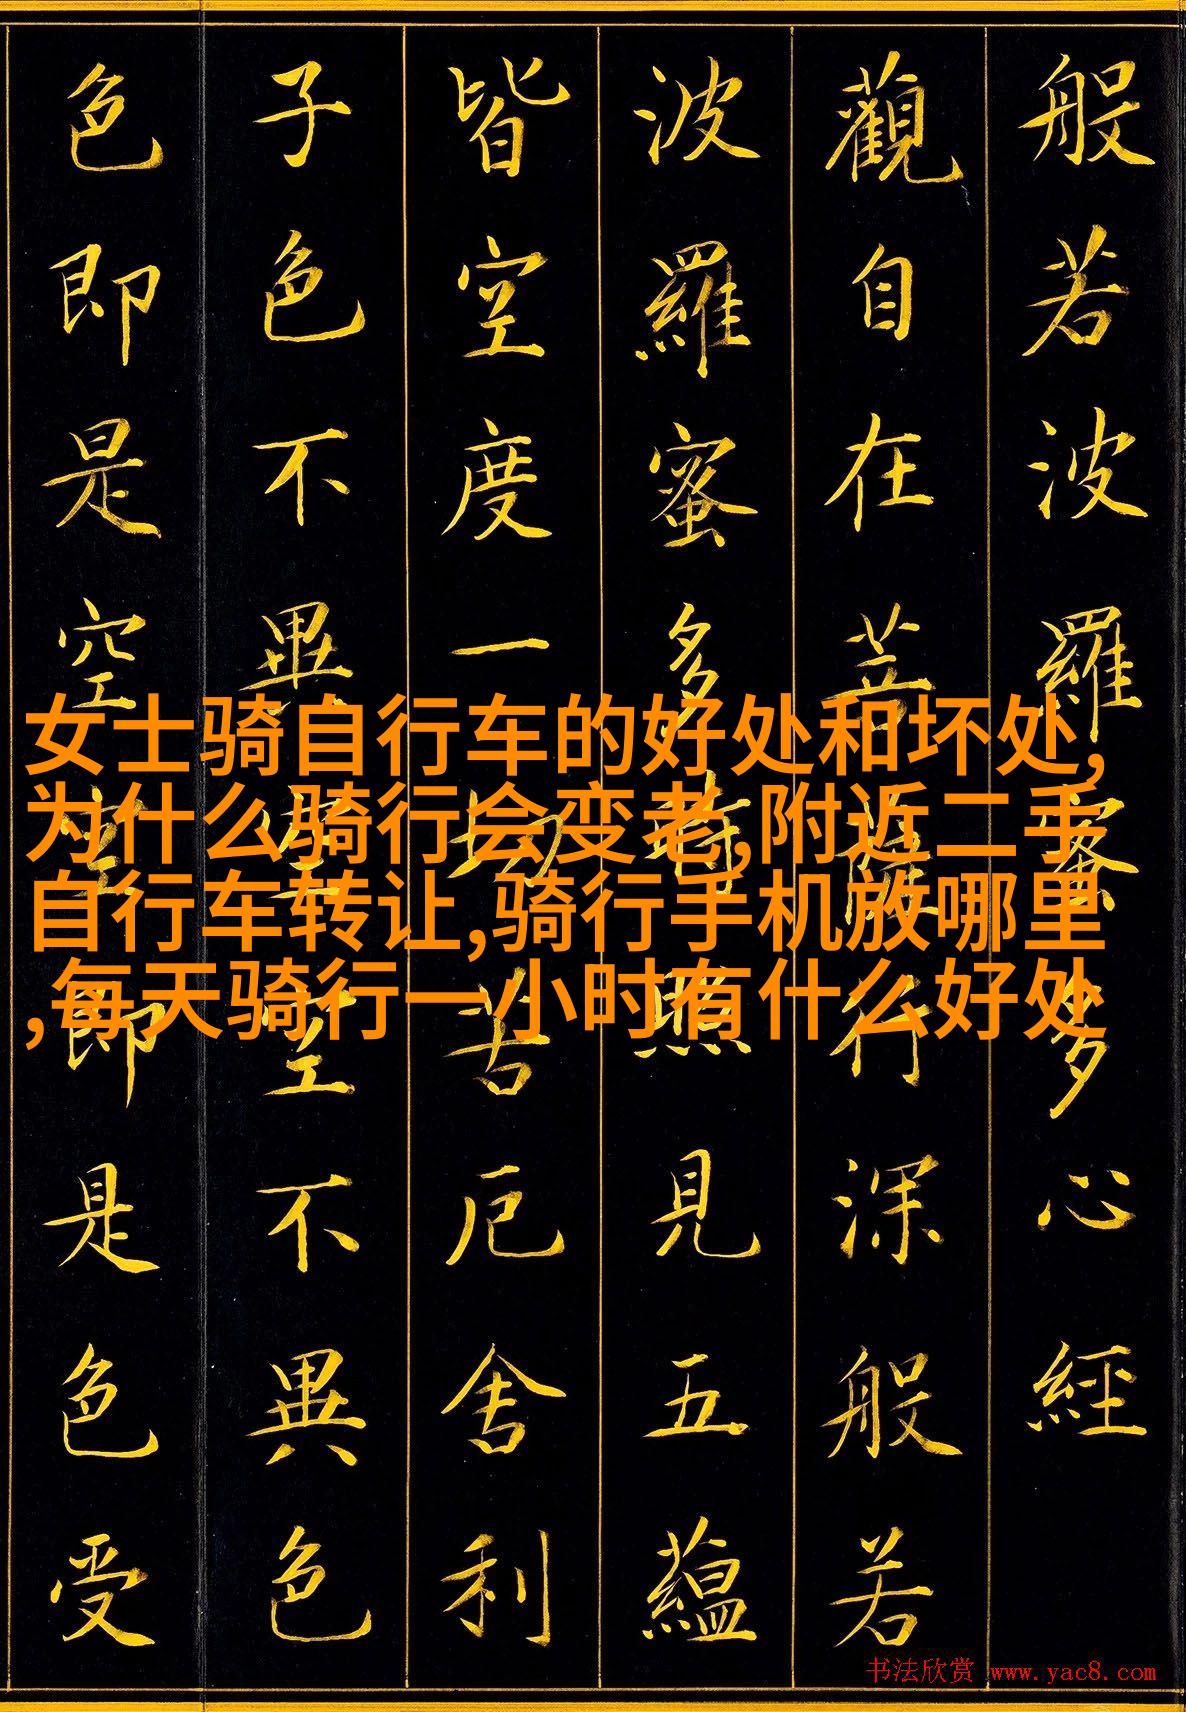 般若波羅蜜多心經
觀自在菩薩行深般若
波羅蜜多時照見五蘊
皆空度一切苦厄舍利
子色不異空空不異色
色即是空空即是色受
女士骑自行车的好处和坏处,
为什么骑行会变老,附近二手
自行车转让,骑行手机放哪里
,每天骑行一小时有什么好处
书法欣赏 www.yac8.com